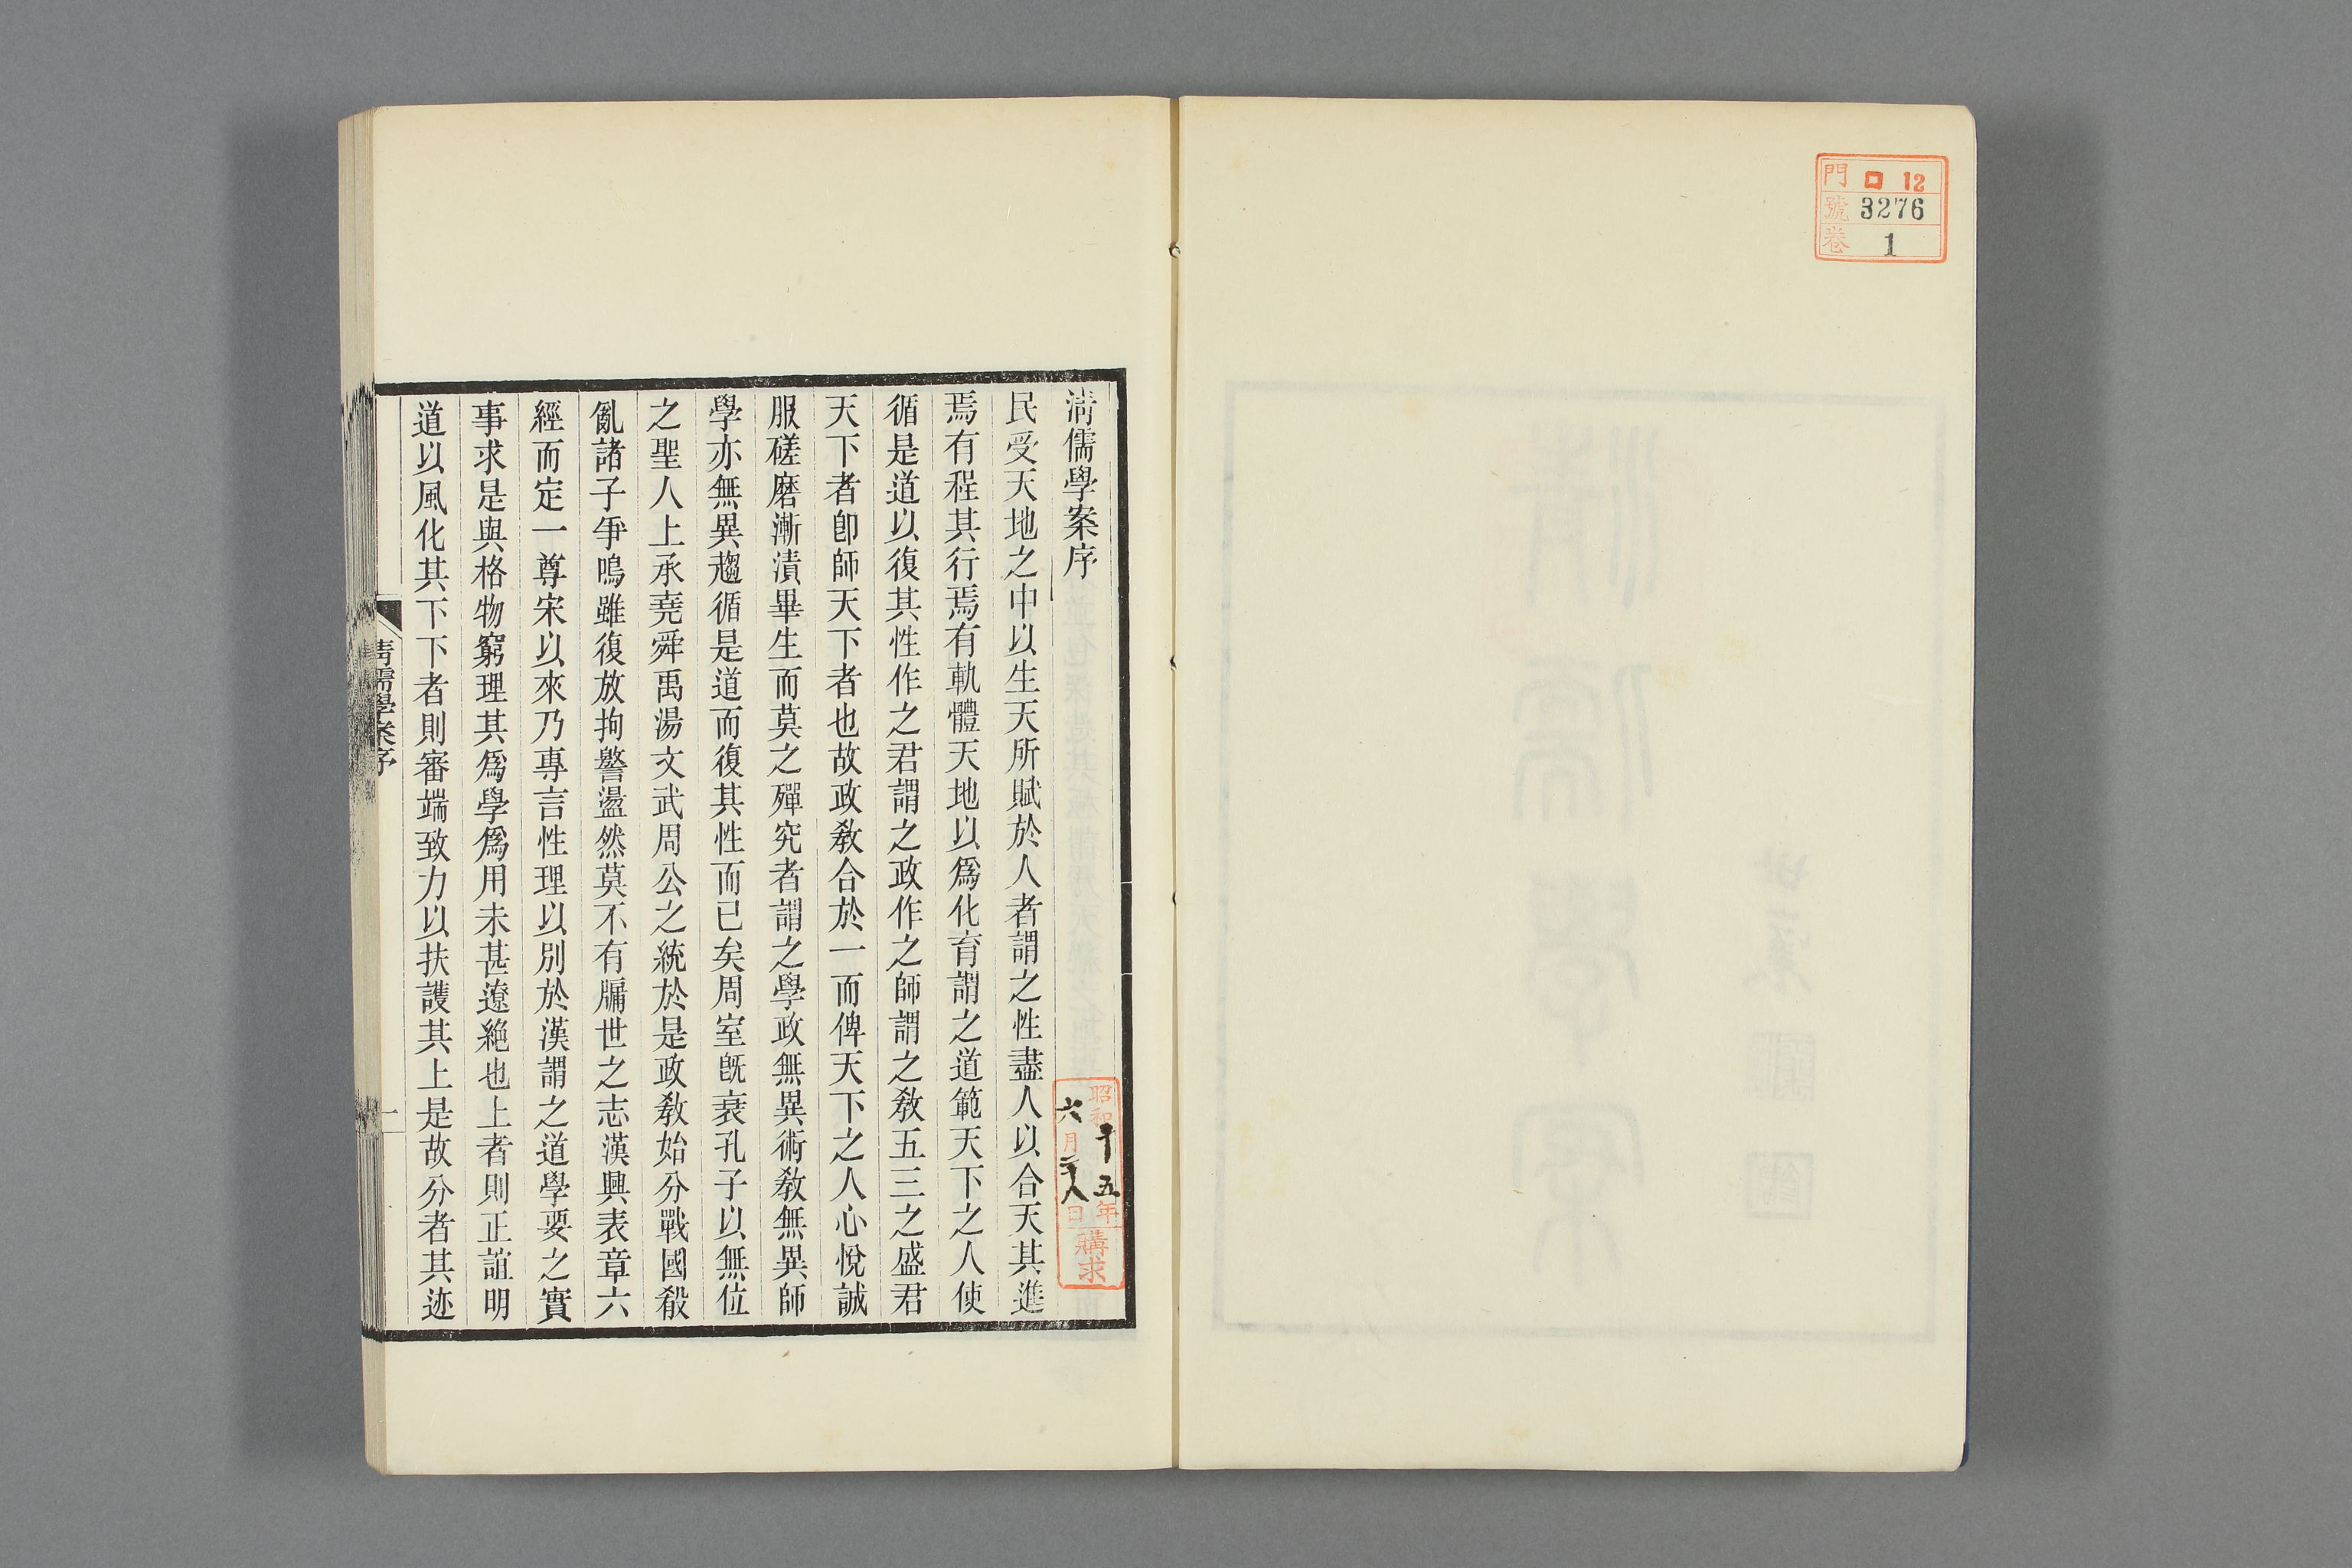 門 ロ 12
號 3276
卷 1
清儒學案序
民受天地之中以生天所賦於人者謂之性盡人以合天其進
焉有程其行焉有軌體天地以爲化育謂之道範天下之人使
循是道以復其性作之君謂之政作之師謂之敎五三之盛君
天下者卽師天下者也故政敎合於一而俾天下之人心悅誠
服磋磨漸漬畢生而莫之殫究者謂之學政無異術敎無異師
學亦無異趨循是道而復其性而已矣周室旣衰孔子以無位
之聖人上承堯舜禹湯文武周公之統於是政敎始分戰國殽
亂諸子爭鳴雖復放拘謷盪然莫不有牖世之志漢興表章六
經而定一尊宋以來乃專言性理以別於漢謂之道學要之實
事求是與格物窮理其爲學爲用未甚遼絕也上者則正誼明
道以風化其下下者則審端致力以扶護其上是故分者其迹
清儒學案序
一
昭和十五年
六月
日
購求